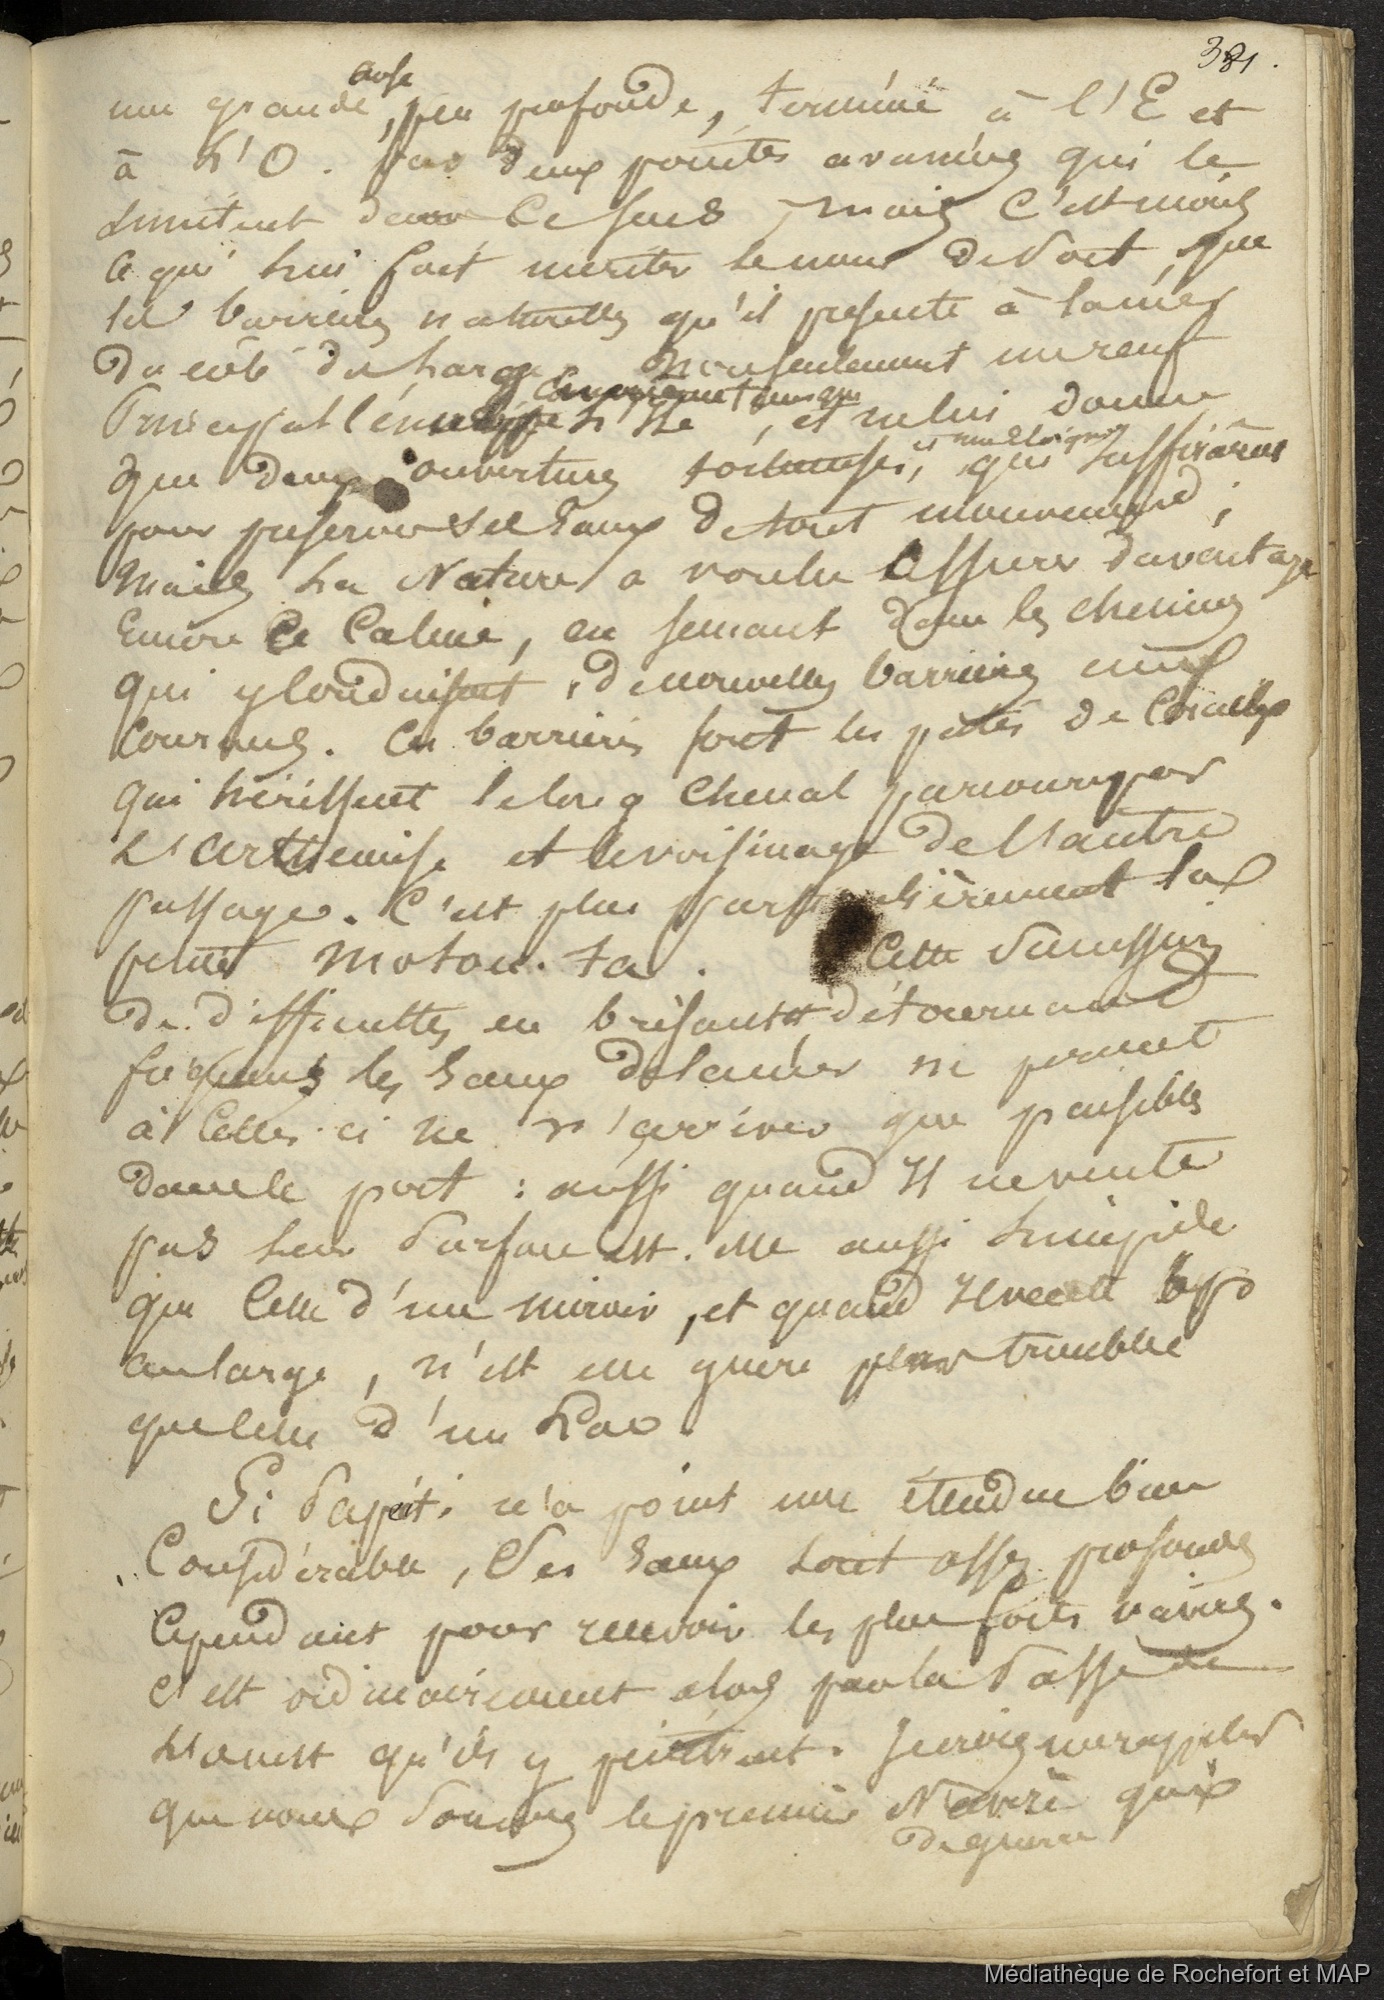 381.
anse
une grande, peu profonde, terminé à l'E et
à L'O. par deux pointes avancées qui le
limitent dans ce sens, mais c'est moins
ce qui lui fait mériter le nom de Port, que
les barrières naturelles qu'il présente à la mer
du côté du large. Non seulement un recif
et ne lui donne
que deux ouvertures tortueuses, qui suffiraient
pour préserver ses Eaux de tout mouvement;
mais La Nature a voulu assurer davantage
Encore ce Calme, en semant dans les chemins
qui y conduisent, de nouvelles barrières aux
Courans. Ces barrières sont les pâtés de Coraux
qui hérissent le long Chenal parcouru par
L'Arthémise et le voisinage de l'autre
passage. C'est plus particulièrement la
petite Motou-ta. Cette
de difficultés en brisant et détournant
les Eaux de la mer ne permet
à Celles ci de n'arriver que paisibles
dans le port : aussi quand Il ne vente
pas leur surface est-elle aussi limpide
que Celle d'un miroir, et quand Il vente
au large, n'est elle guere plus troublée
que Celle d'un Lac
Si Papéiti n'a point une étendue bien
Considérable, Ses Eaux sont assez profondes
Cependant pour recevoir les plus forts navires.
C'est ordinairement alors par la Passe de
L'ouest qu'ils y pénètrent. Je crois me rappeler
que nous sommes le premier Navire qui
de guerre
Médiathèque de Rochefort et MAP